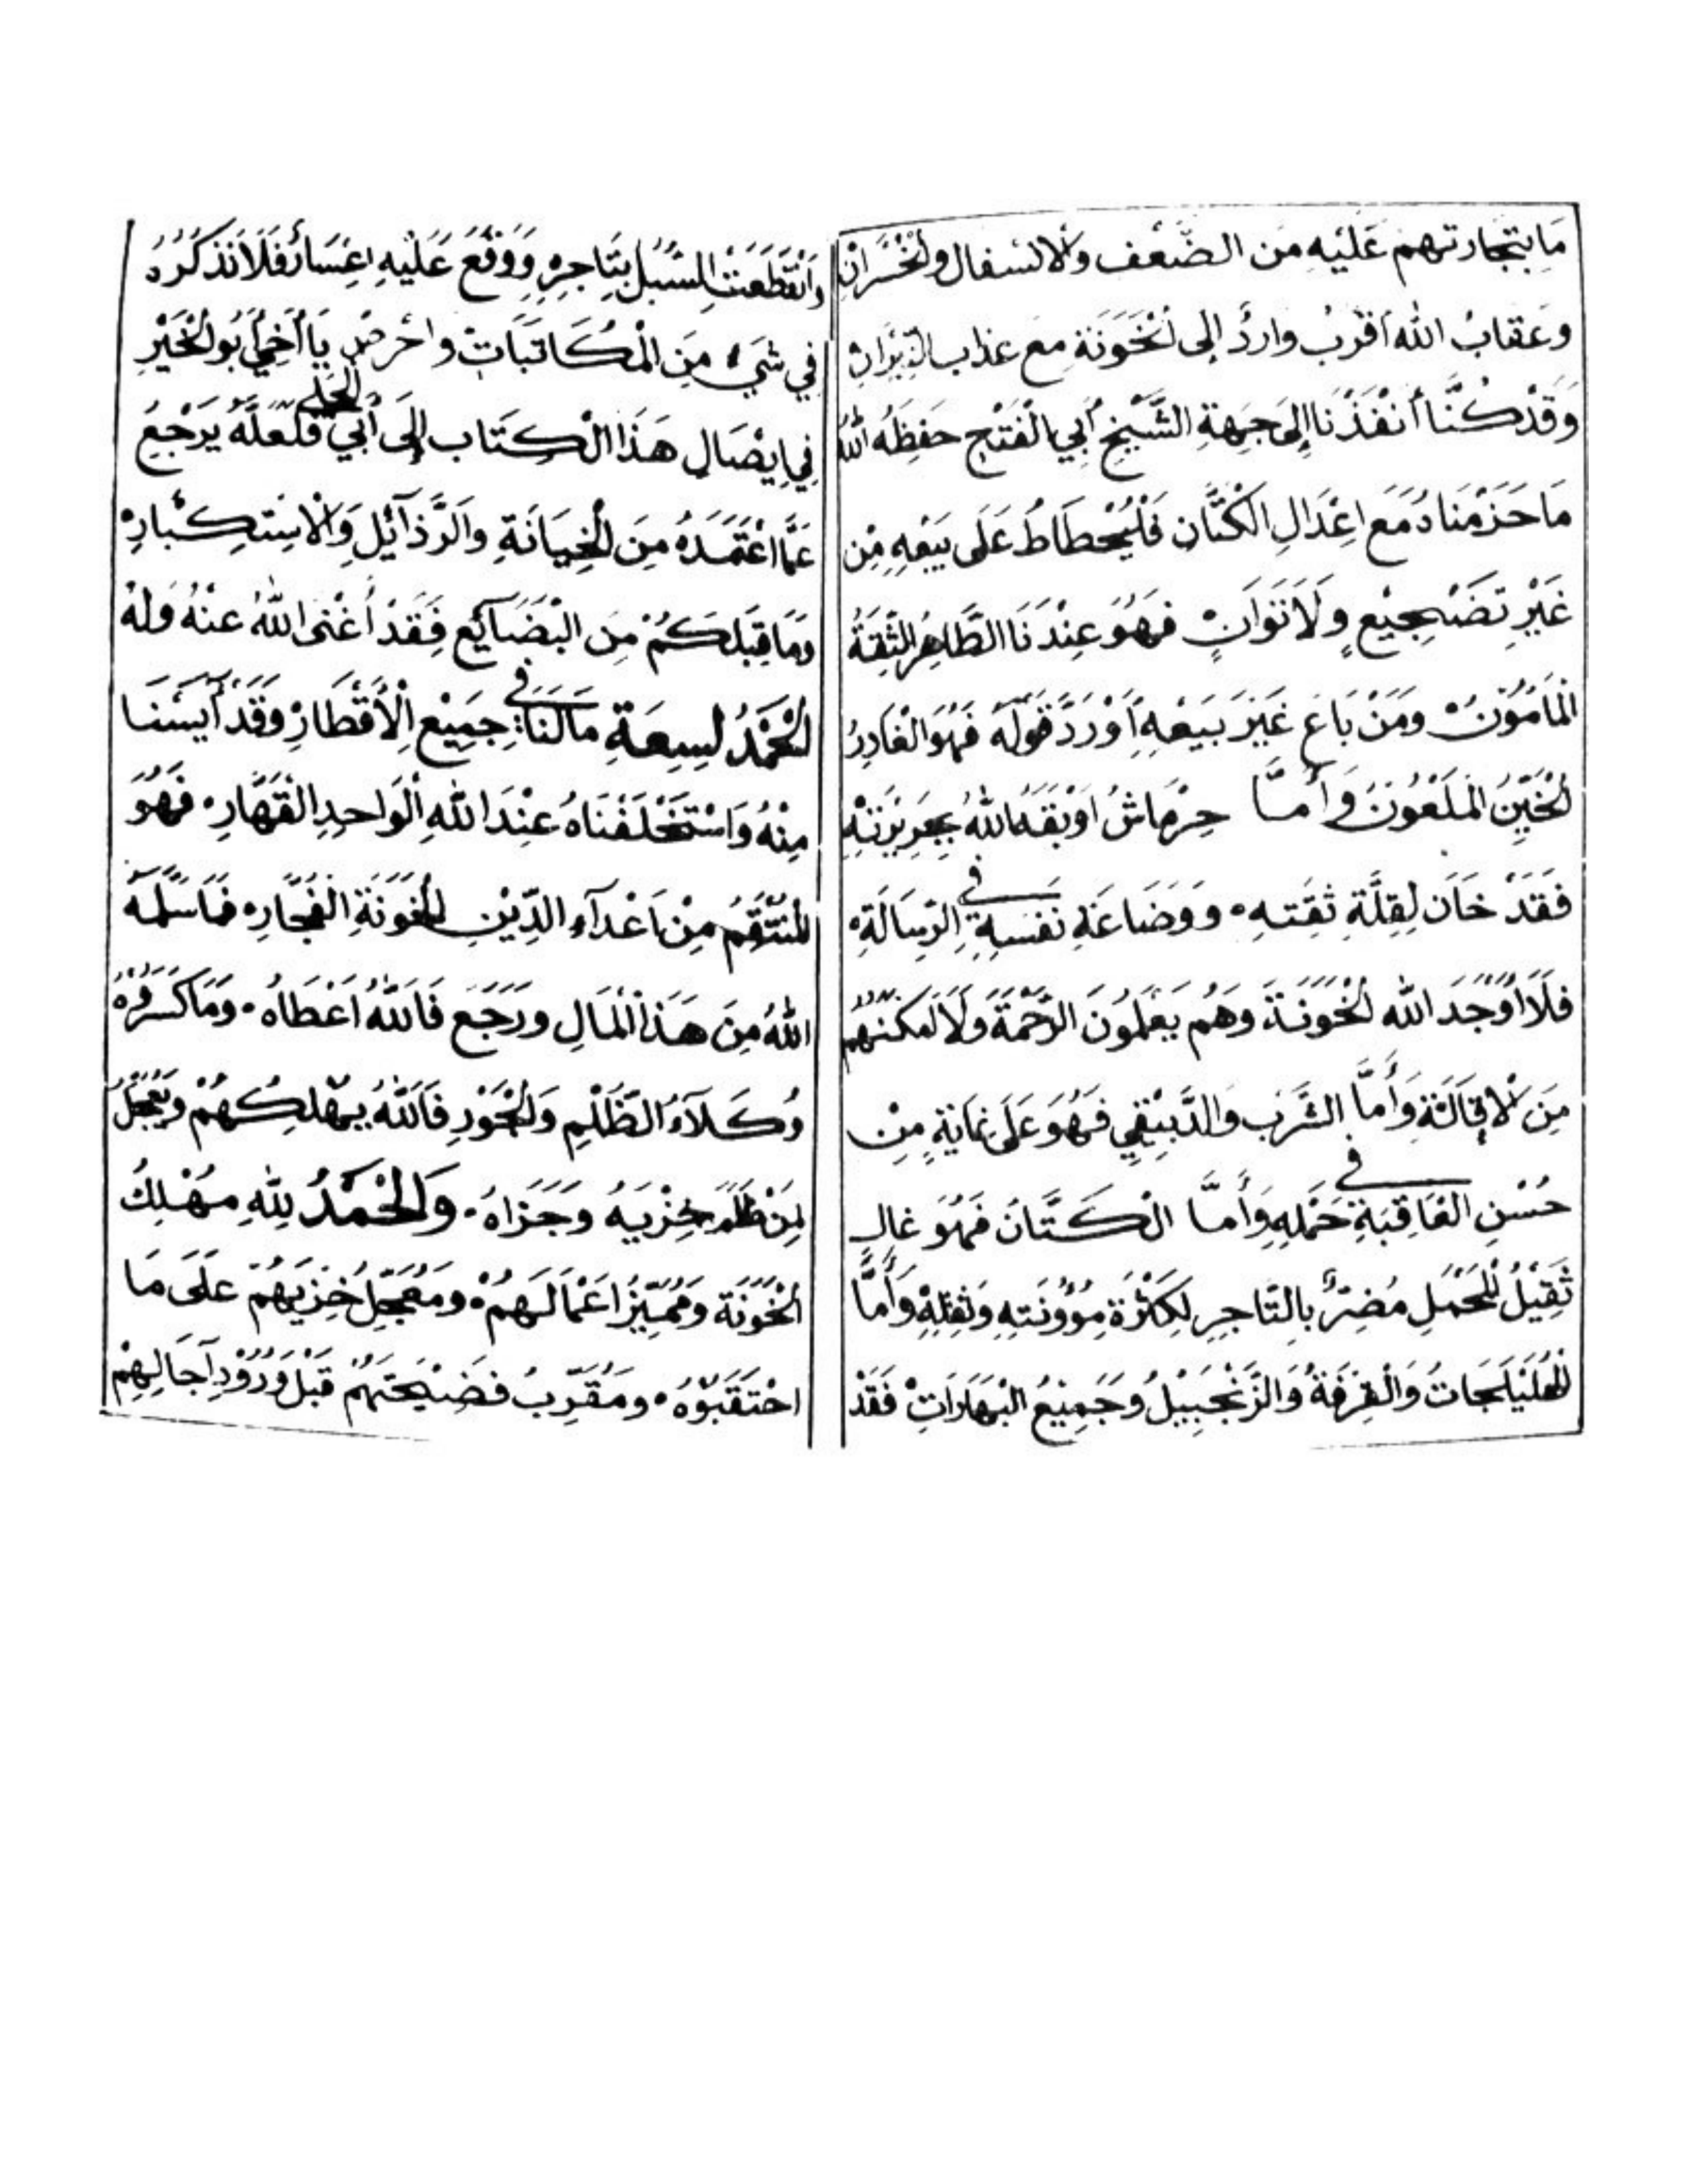 مَا بتجارتهم عَلَيْهِ من الضَّعْف والاسفال والْخُسْرَانِ
وعَقابُ الله اَقْرَبُ واردٌ إلى الْخَوَنَةِ مَعَ عذاب النِّيْرَانِ
وَقَدْ كُنَّا أنْفَذْنَا إلَى جِهَةِ الشَّيْخِ أَبِي الْفَتْحِ حفِظَهُ اللهُ
مَا حَزَمْنَاهُ مَعَ اعِْدَالِ الْكَتَّانِ فَلْيُحْطَاطُ عَلَى بَيْعِهِ مِنْ
غَيْرِ تَضْجِيْعٍ وَلَا تَوَانٍ فهُوَ عِنْدَنَا الطَّاهِرُ الثِّقَةُ
الْمَأمُوْنُ ومَنْ بَاعَ غَيْرَ بَيْعِهِ اَوْ رَدَّ قوْلَهُ فَهُوَ الْغَادِرُ
الْخَيِّنُ الْمَلْعُونُ وَأمَّا حِرْمَاسُ اَوْبَقَهُ اللهُ بِجَرِيْرَتِهِ
فَقَدْ خَانَ لِقِلَّةِ ثِقَتهِ ۰ وَوَضَاعَةِ نفْسِهِ فِي الرِّسَالَةِ
فَلَا اَوْجَدَ الله الْخَوَنَةَ وَهُم يَعْلَمُونَ الرَّحْمَةَ وَلَا اَمكَنَهُم
مِنَ الْاِقَالَةِ وَأَمَّا الشَّرَبُ والدَّبِيْقِي فَهُوَ عَلَى غَايَةٍ مِنْ
حُسْنِ الْعَاقِبَةِ فِي حَمْلِهِ وَأَمَّا الْكَتَّانُ فَهُوَ غالٍ
ثَقِيْلُ الْمَحْمَلِ مُضِرٌّ بالتَّاجِرِ لكَثْرَةِ مؤُوْنَتِهِ وَثِقلِهِ وَأَمَّا
الْهَلَيْلَجَاتُ وَالْقِرْفَةُ وَالزَّنْجَبِيْلُ وَجَمِيْعُ الْبَهَارَاتِ فَقَدْ
وَانْقَطَعَتْ السُّبُلُ بِتَاجِرِهِ وَوَقَعَ عَلَيْهِ اعِْسَارٌ فَلَا نَذكُرُهُ
فِي شَيْءٍ مِنَ الْمُكَاتَبَاتِ واحْرصْ يَا أخِي أَبُو الْخَيْرِ
فِي إيْصَالِ هَذَا الْكِتَاب إلَى أبِي الجلي فَلَعَلَّهُ يَرْجِعُ
عَمَّا اعْتَمَدَهُ مِنَ الْخِيَانَةِ والرَّذَآئِلِ وَالْاِسْتِكْبَارِ ۰
وَمَا قِبَلَكُمْ مِنَ الْبَضَآئِعِ فَقَدْ أَغْنَى اللهُ عنْهُ وَلهُ
الْحَمْدُ لِسِعَةِ مَالَنَا فِي جَمِيْعِ الْأَقْطَارِ وَقَدْ أَيَسْنَا
مِنْهُ وَاسْتَخْلَفْنَاهُ عِنْدَ اللهِ الْوَاحِدِ الْقَهَّارِ ۰ فَهُوَ
الْمُنْتَقِمُ مِنْ اَعْدَآءِ الدِّيْنِ الْخَوَنَةِ الْفُجَّارِ ۰ فَمَا سَلَّمَهُ
اللهُ مِنَ هَذَا الْمَالِ وَرَجَعَ فَاللهُ اَعْطَاهُ ۰ وَمَا كَسَرُوْهُ
وُكَلَآءُ الظُّلْمِ وَالْجَوْرِ فَاللهُ يُهْلِكُهُمْ وَيُعَجِّلُ
لِمَنْ ظَلَمَ خِزْيَهُ وَجَزَاهُ ۰ وَالْحَمْدُ لِلهِ مُهْلِكُ
الْخَوَنَةِ وَمُمَيِّزُ اَعْمَالَهُمْ ۰ وَمُعَجِّلُ خِزْيَهُمْ عَلَى مَا
احْتَقَبُوْهُ ۰ وَمُقَرِّبُ فَضِيْحَتَهُمْ قَبْلَ وَرُوْدِ آجَالِهِمْ